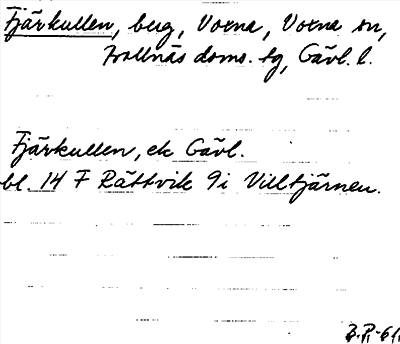 Fjärkullen, bug, Voxna, Voxna sn,
Bollnäs doms. tg, Gävl. l.
Fjärkullen, ek Gävl.
bl. 14 F Rättvik 9i Villtjärnen.
B.P. -61.